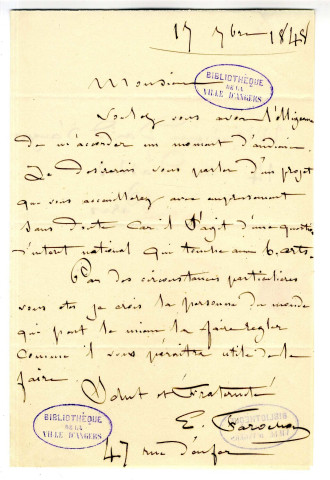 17 7bre 1848
Monsieur
BIBLIOTHÈQUE
DE LA
VILLE D'ANGERS
Voulez vous avoir l'obligeance
de m'accorder un moment d'audience.
Je desirerais vous parler d'un projet
que vous accueillerez avec empressement
sans doute car il s'agit d'une question
d'interet national qui touche aux b. arts.
Par des circonstances particulières
vous etes je crois la personne du monde
qui peut le mieux la faire regler
comme il vous paraitra utile de le
faire.
Salut et Fraternité
E.
BIBLIOTHÈQUE
DE LA
VILLE D'ANGERS
BIBLIOTHÈQUE
DE LA
VILLE D'ANGERS
47 rue d'enfer